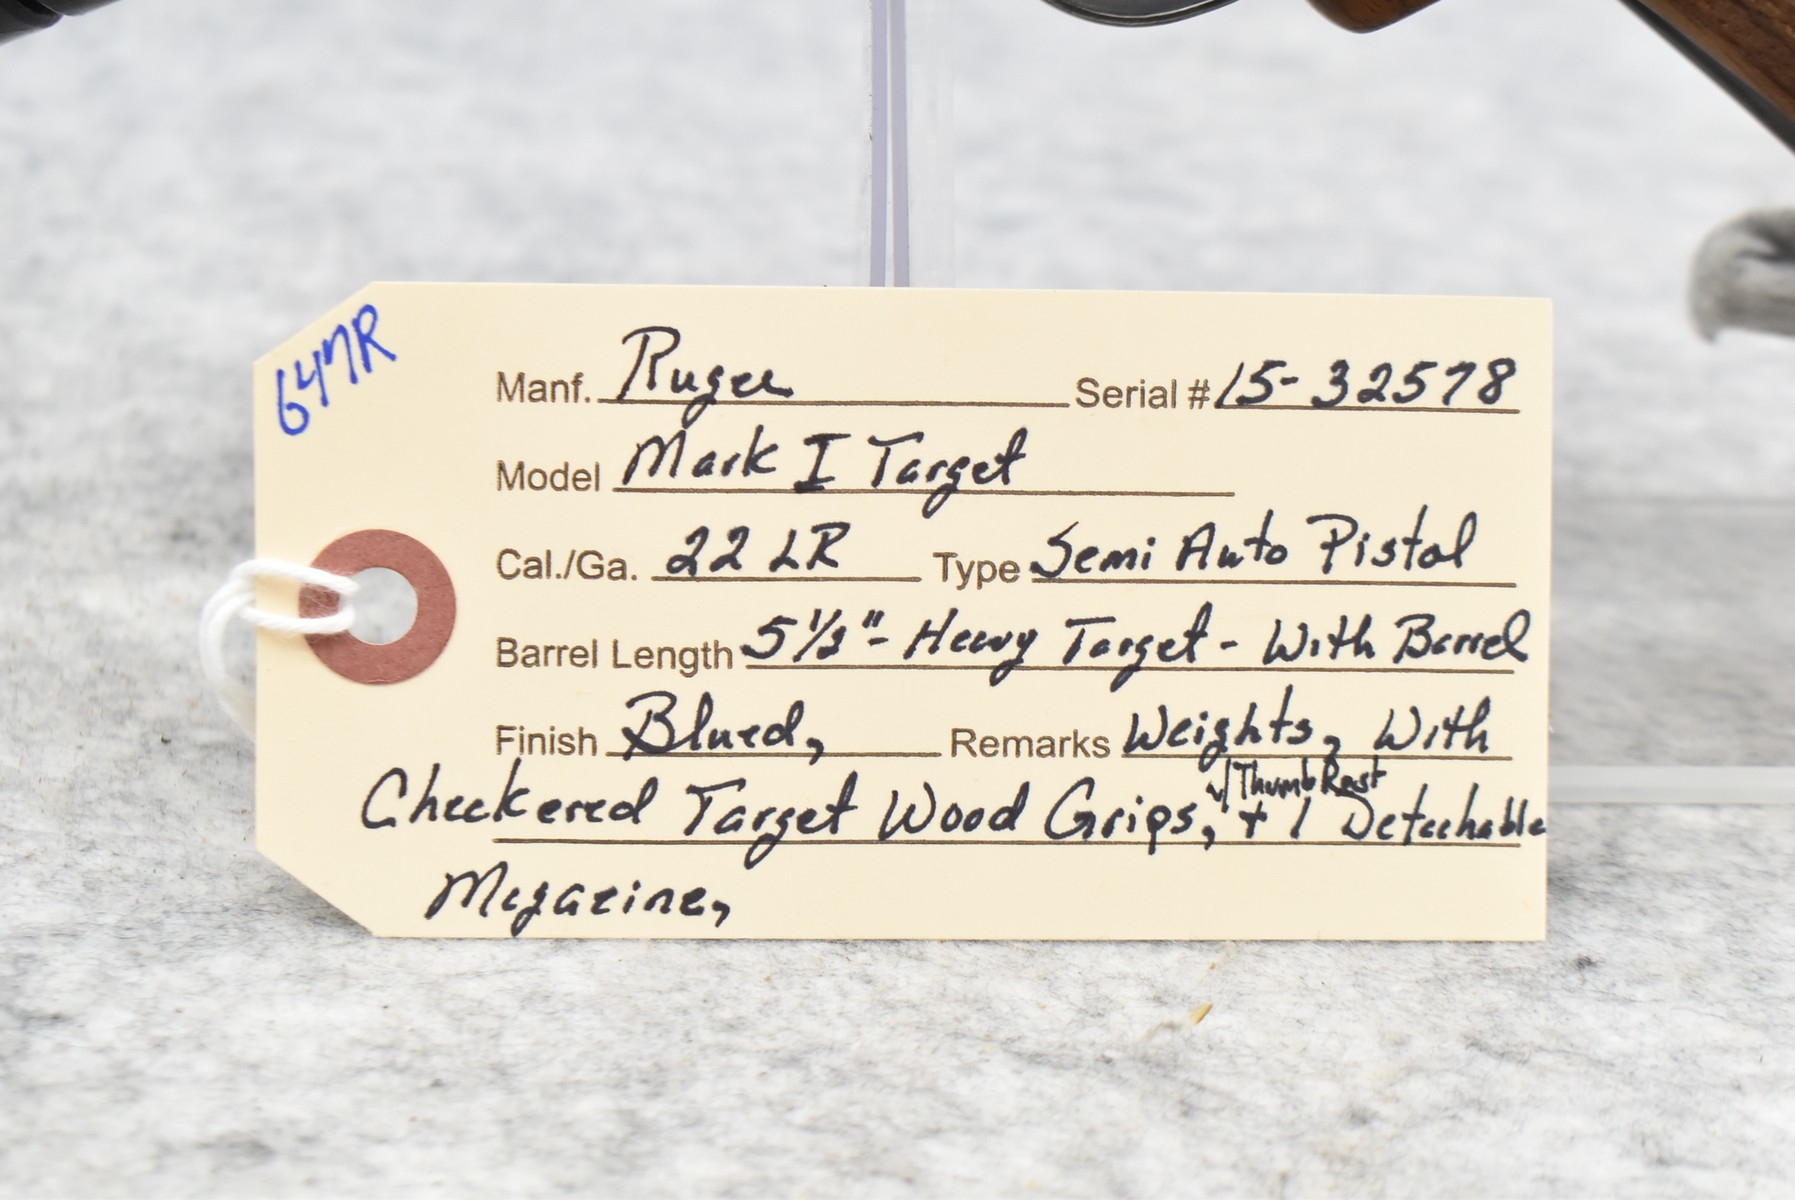 647R
Manf. Ruger Serial # 15-32578
Model Mark I Target
Cal./Ga. 22 LR Type Semi Auto Pistol
Barrel Length 5 1/2" - Heavy Target - With Barrel
Finish Blued, Remarks Weights, With
w/ Thumb Rest
Checkered Target Wood Grips, + 1 Detachable
Magazine,